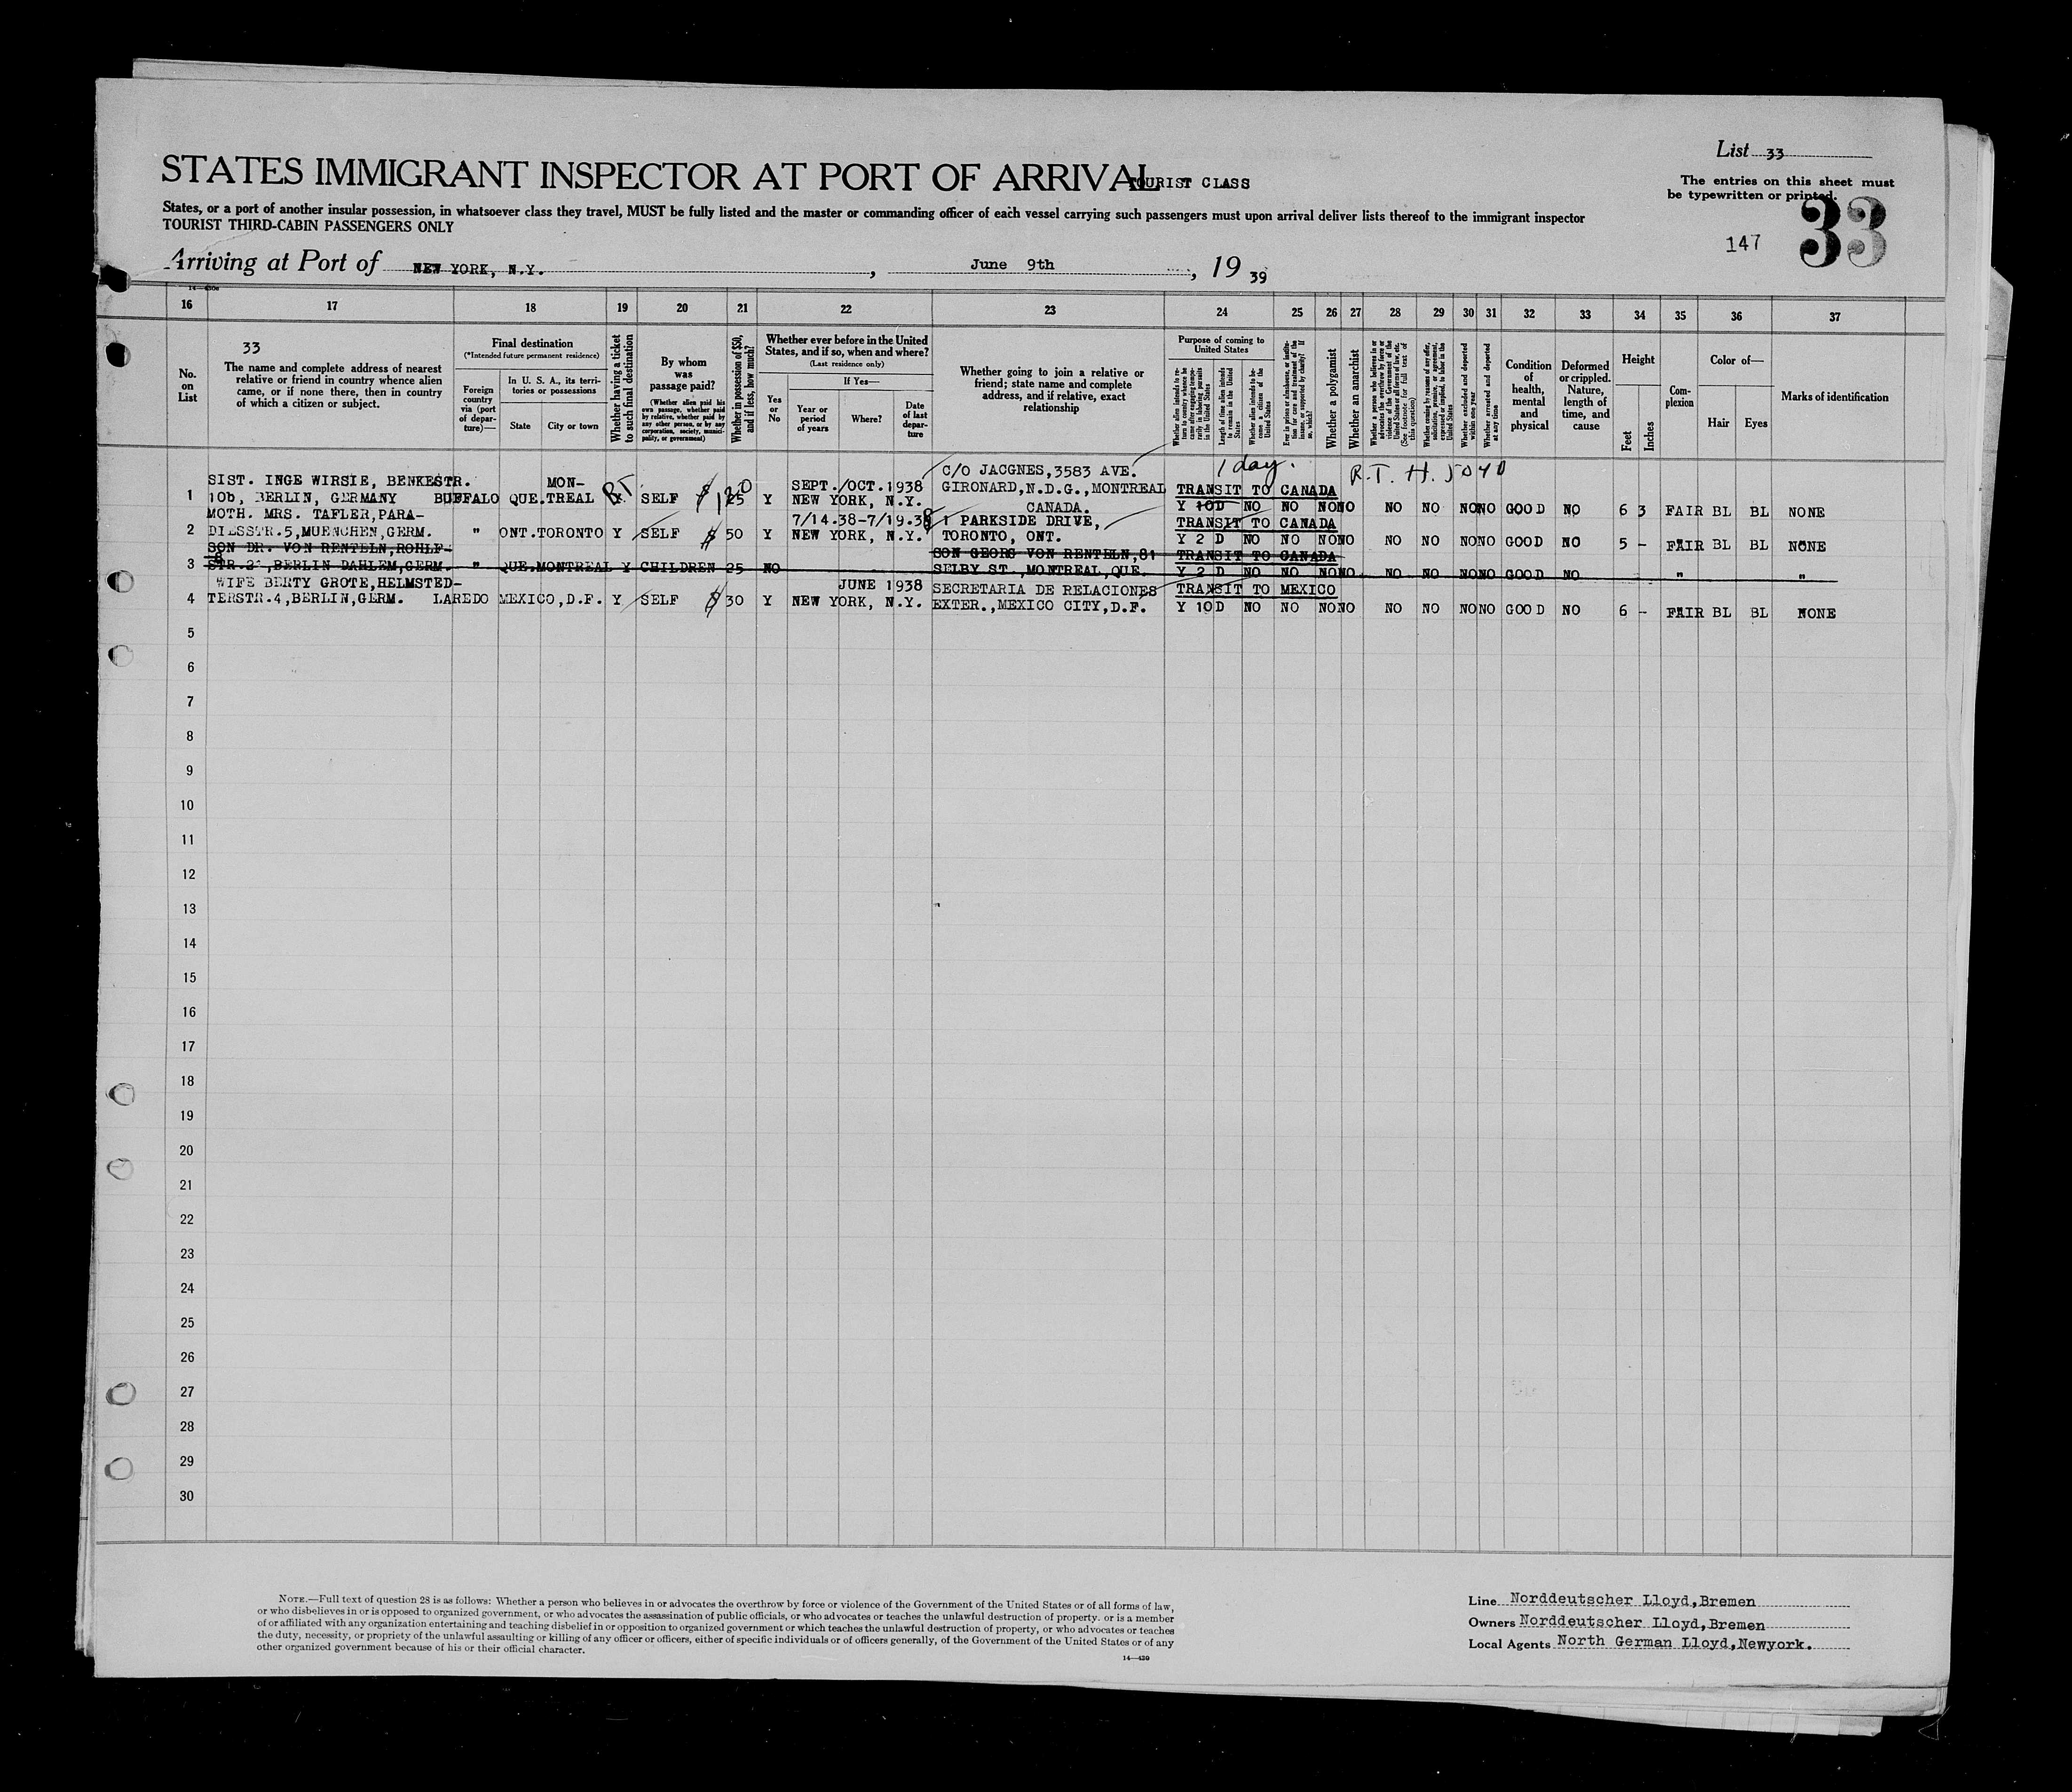 STATES IMMIGRANT INSPECTOR AT PORT OF ARRIVAL
TOURIST CLASS
List 33
The entries on this sheet must
be typewritten or printed.
States, or a port of another insular possession, in whatsoever class they travel, MUST be fully listed and the master or commanding officer of each vessel carrying such passengers must upon arrival deliver lists thereof to the immigrant inspector
TOURIST THIRD-CABIN PASSENGERS ONLY
147 33
Arriving at Port of NEW YORK, N.Y. , June 9th , 19 39
16 17 18 19 20 21 22 23 24 25 26 27 28 29 30 31 32 33 34 35 36 37
No. on List
33
The name and complete address of nearest
relative or friend in country whence alien
came, or if none there, then in country
of which a citizen or subject.
Final destination
(*Intended future permanent residence)
Foreign country via (port of departure)—
In U. S. A., its territories or possessions
State
City or town
Whether having a ticket to such final destination
By whom was passage paid?
(Whether alien paid his own passage, whether paid by relative, whether paid by any other person, or by any corporation, society, municipality, or government)
Whether in possession of $50, and if less, how much?
Whether ever before in the United
States, and if so, when and where?
(Last residence only)
Yes or No
If Yes—
Year or period of years
Where?
Date of last departure
Whether going to join a relative or
friend; state name and complete
address, and if relative, exact
relationship
Purpose of coming to
United States
Length of time alien intends to remain in the United States
Whether alien intends to become a citizen of the United States
Whether a polygamist
Whether an anarchist
Whether excluded and deported within one year
Whether arrested and deported at any time
Condition of health, mental and physical
Deformed or crippled. Nature, length of time, and cause
Height
Feet
Inches
Complexion
Color of—
Hair
Eyes
Marks of identification
1 day.
R.T. H. 5040
SIST. INGE WIRSIE, BENKESTR. MON- SEPT./OCT.1938 C/O JACGNES,3583 AVE.
GIRONARD,N.D.G.,MONTREAL TRANSIT TO CANADA
1 10b, BERLIN, GERMANY BUFFALO QUE.TREAL SELF Y NEW YORK, N.Y. CANADA. Y 10D NO NO NO NO NO NO NO NO GOOD NO 6 3 FAIR BL BL NONE
MOTH. MRS. TAFLER,PARA- 7/14.38-7/19.38 1 PARKSIDE DRIVE, TRANSIT TO CANADA
2 DIESSTR.5,MUENCHEN,GERM. " ONT.TORONTO Y SELF $ 50 Y NEW YORK, N.Y. TORONTO, ONT. Y 2 D NO NO NO NO NO NO NO NO GOOD NO 5 - FAIR BL BL NONE
SON DR. VON RENTELN,ROHLF- SON GEORG VON RENTELN,81 TRANSIT TO CANADA
3 BERLIN DAHLEM,GERM. " QUE.MONTREAL Y CHILDREN 25 NO SELBY ST.,MONTREAL,QUE. Y 2 D NO NO NO NO NO NO NO NO GOOD NO " "
WIFE BERTY GROTE,HELMSTED- JUNE 1938 SECRETARIA DE RELACIONES TRANSIT TO MEXICO
4 TERSTR.4,BERLIN,GERM. LAREDO MEXICO,D.F. Y SELF $ 30 Y NEW YORK, N.Y. EXTER.,MEXICO CITY,D.F. Y 10D NO NO NO NO NO NO NO NO GOOD NO 6 - FAIR BL BL NONE
5
6
7
8
9
10
11
12
13
14
15
16
17
18
19
20
21
22
23
24
25
26
27
28
29
30
NOTE.—Full text of question 28 is as follows: Whether a person who believes in or advocates the overthrow by force or violence of the Government of the United States or of all forms of law,
or who disbelieves in or is opposed to organized government, or who advocates the assassination of public officials, or who advocates or teaches the unlawful destruction of property. or is a member
of or affiliated with any organization entertaining and teaching disbelief in or opposition to organized government or which teaches the unlawful destruction of property, or who advocates or teaches
the duty, necessity, or propriety of the unlawful assaulting or killing of any officer or officers, either of specific individuals or of officers generally, of the Government of the United States or of any
other organized government because of his or their official character.
14—430
Line Norddeutscher Lloyd,Bremen
Owners Norddeutscher Lloyd,Bremen
Local Agents North German Lloyd,Newyork.